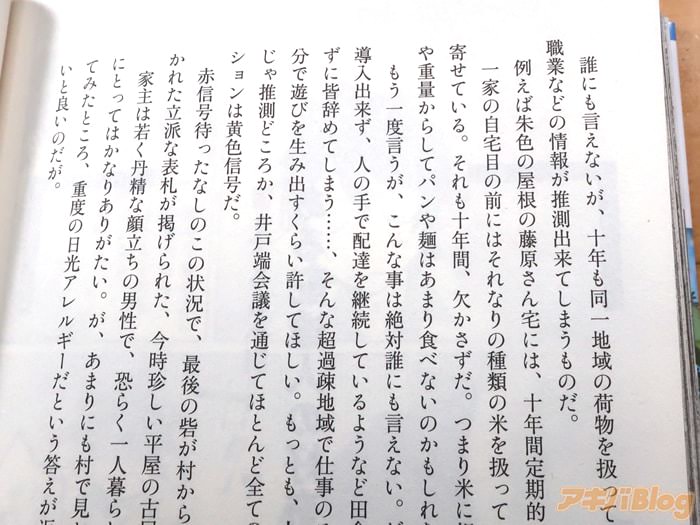 誰にも言えないが、十年も同一地域の荷物を扱って
職業などの情報が推測出来てしまうものだ。
例えば朱色の屋根の藤原さん宅には、十年間定期的
一家の自宅目の前にはそれなりの種類の米を扱って
寄せている。それも十年間、欠かさずだ。つまり米に
や重量からしてパンや麺はあまり食べないのかもしれ
もう一度言うが、こんな事は絶対誰にも言えない。
導入出来ず、人の手で配達を継続しているような田
ずに皆辞めてしまう……、そんな超過疎地域で仕事の
分で遊びを生み出すくらい許してほしい。もっとも、
じゃ推測どころか、井戸端会議を通じてほとんど全ての
ションは黄色信号だ。
赤信号待ったなしのこの状況で、最後の砦が村から
かれた立派な表札が掲げられた、今時珍しい平屋の古
家主は若く丹精な顔立ちの男性で、恐らく一人暮ら
にとってはかなりありがたい。が、あまりにも村で見
てみたところ、重度の日光アレルギーだという答えが
いと良いのだが。
アキバBlog